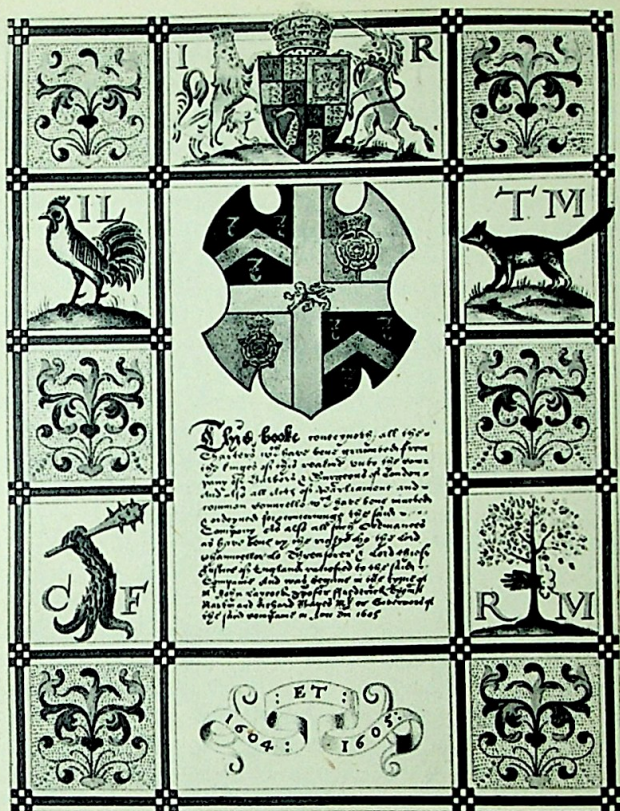 I R
IL
TM
This booke conteyneth all the
Charters wch have bene graunted from
the kinges of this realme unto the Com
pany of Barbors & Surgeons of London
And also all Acts of Parliament and
common which have bene
& ordeyned for concerninge the said
Company As also all such Ordinances
as have bene by the the lord
Chauncellor lo Threasorer & Lord chiefe
Justice of England to the said
Company And was begune in the tyme of
Mr John Laycock
Martin and Richard Mr or Governors of
the said companie in Ano Dni 1605
C F
R M
: ET :
1604: 1605: